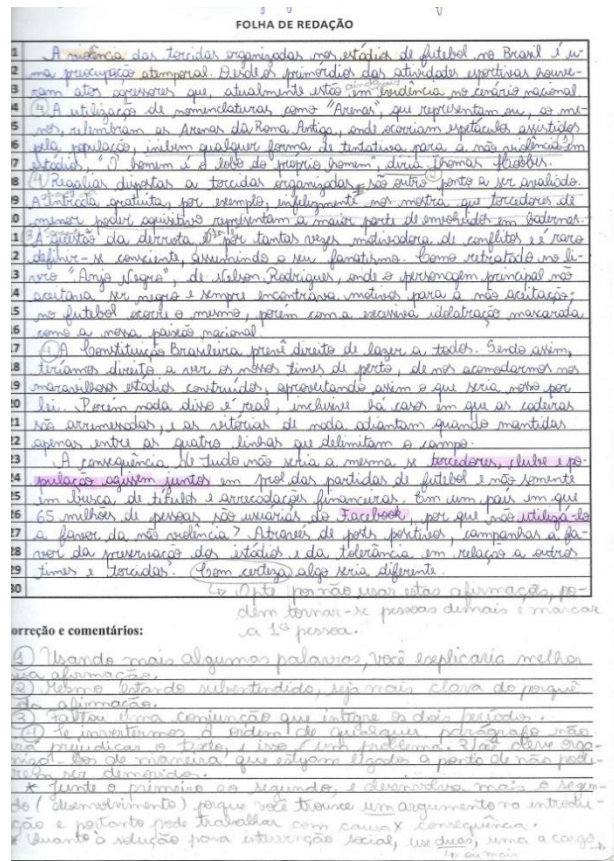 FOLHA DE REDAÇÃO
1 A violência das torcidas organizadas nos estádios de futebol no Brasil é u-
2 ma preocupação atemporal. Desde os primórdios das atividades esportivas houve-
3 ram atos agressores que, atualmente estão em evidência no cenário nacional.
4 (4) A utilização de nomenclaturas como "Arenas", que representam ou, ao me-
5 nos, relembram as Arenas da Roma Antiga, onde ocorriam espetáculos assistidos
6 pela população, inibem qualquer forma de tentativa para a não violência em
7 estádios, "O homem é o lobo do próprio homem", diria Thomas Hobbes.
8 (4) Regalias dispostas a torcidas organizadas são outro ponto a ser avaliado.
9 A entrada gratuita, por exemplo, infelizmente nos mostra, que torcedores de
0 menor poder aquisitivo representam a maior parte de envolvidos em badernas.
1 A questão da derrota, é por tantas vezes motivadora de conflitos e é raro
2 definir-se consciente, assumindo o seu fanatismo. Como retratado no li-
3 vro "Anjo Negro", de Nelson Rodrigues, onde o personagem principal não
4 aceitava ser negro e sempre encontrava motivos para a não aceitação;
5 no futebol ocorre o mesmo, porém com a excessiva idolatração mascarada
6 como a nossa paixão nacional.
7 (1) A Constituição Brasileira prevê direito de lazer a todos. Sendo assim,
8 teríamos direito a ver os nossos times de perto, de nos acomodarmos nos
19 maravilhosos estádios construídos, aproveitando assim o que seria nosso por
20 lei. Porém nada disso é real, inclusive há casos em que as cadeiras
21 são arremessadas, e as vitórias de nada adiantam quando mantidas
22 apenas entre as quatro linhas que delimitam o campo.
23 A consequência de tudo não seria a mesma se torcedores, clube e po-
24 pulação agissem juntos em prol das partidas de futebol e não somente
25 em busca de títulos e arrecadações financeiras. Em um país em que
26 65 milhões de pessoas são usuárias do Facebook, por que não utilizá-lo
27 a favor da não violência? Através de posts positivos, campanhas a fa-
28 vor da preservação dos estádios e da tolerância em relação a outros
29 times e torcidas. Com certeza algo seria diferente.
30 Opte por não usar estas afirmação, po-
dem tornar-se pessoas demais e marcar
a 1ª pessoa.
orreção e comentários:
(1) Usando mais algumas palavras, você explicaria melhor
sua afirmação.
(2) Mesmo estando subentendido, seja mais clara do porquê
da afirmação.
(3) Faltou uma conjunção que integre os dois períodos.
(4) Se invertermos a ordem de qualquer parágrafo não
irá prejudicar o texto, e isso é um problema. Você deve orga-
nizá-los de maneira que estejam ligados a ponto de não pode-
rem ser demovidos.
* Junte o primeiro ao segundo, e desenvolva mais o segun-
do (desenvolvimento) porque você trouxe um argumento na introdu-
ção e portanto pode trabalhar com causa x consequência.
* Quanto à solução para intervenção social, use duas, uma a cargo
ou mais